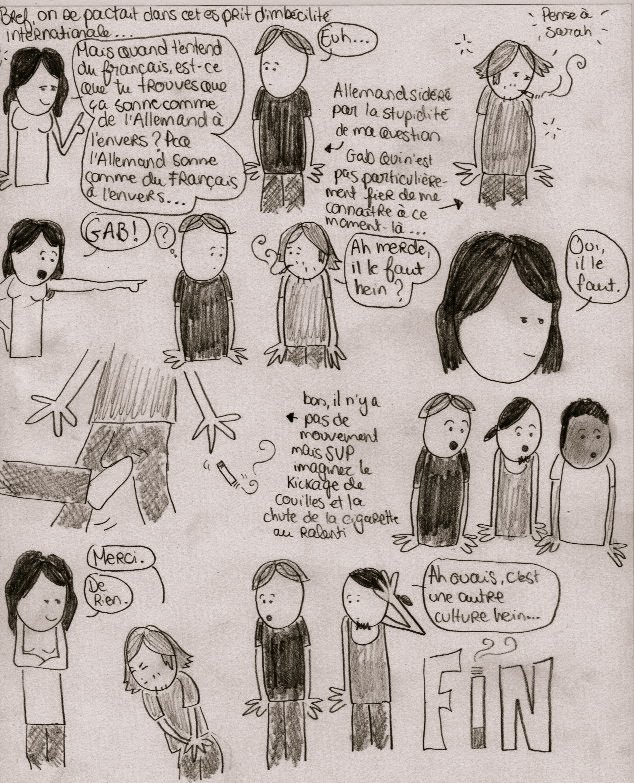 Bref, on se pactait dans cet esprit d'imbécilité
internationale...
Mais quand t'entend
du français, est-ce
que tu trouves que
ça sonne comme
de l'Allemand à
l'envers? Pcq
l'Allemand sonne
comme du Français
à l'envers...
Euh...
Pense à
Sarah
Allemand sidéré
par la stupidité
de ma question
Gab qui n'est
pas particulière-
ment fier de me
connaître à ce
moment-là...
GAB!
?
Ah merde,
il le faut
hein?
Oui,
il le
faut.
bon, il n'y a
pas de
mouvement
mais SVP
imaginez le
kickage de
couilles et la
chute de la cigarette
au ralenti
Merci.
De
Rien.
Ah ouais, c'est
une autre
culture hein...
FIN